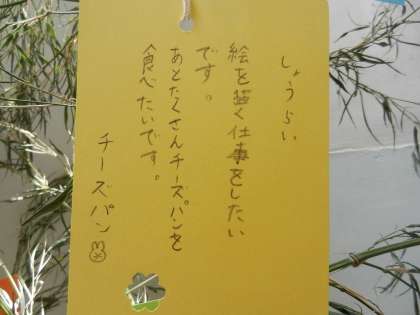 しょうらい
絵を描く仕事をしたい
です。
あとたくさんチーズパンを
食べたいです。
チーズパン